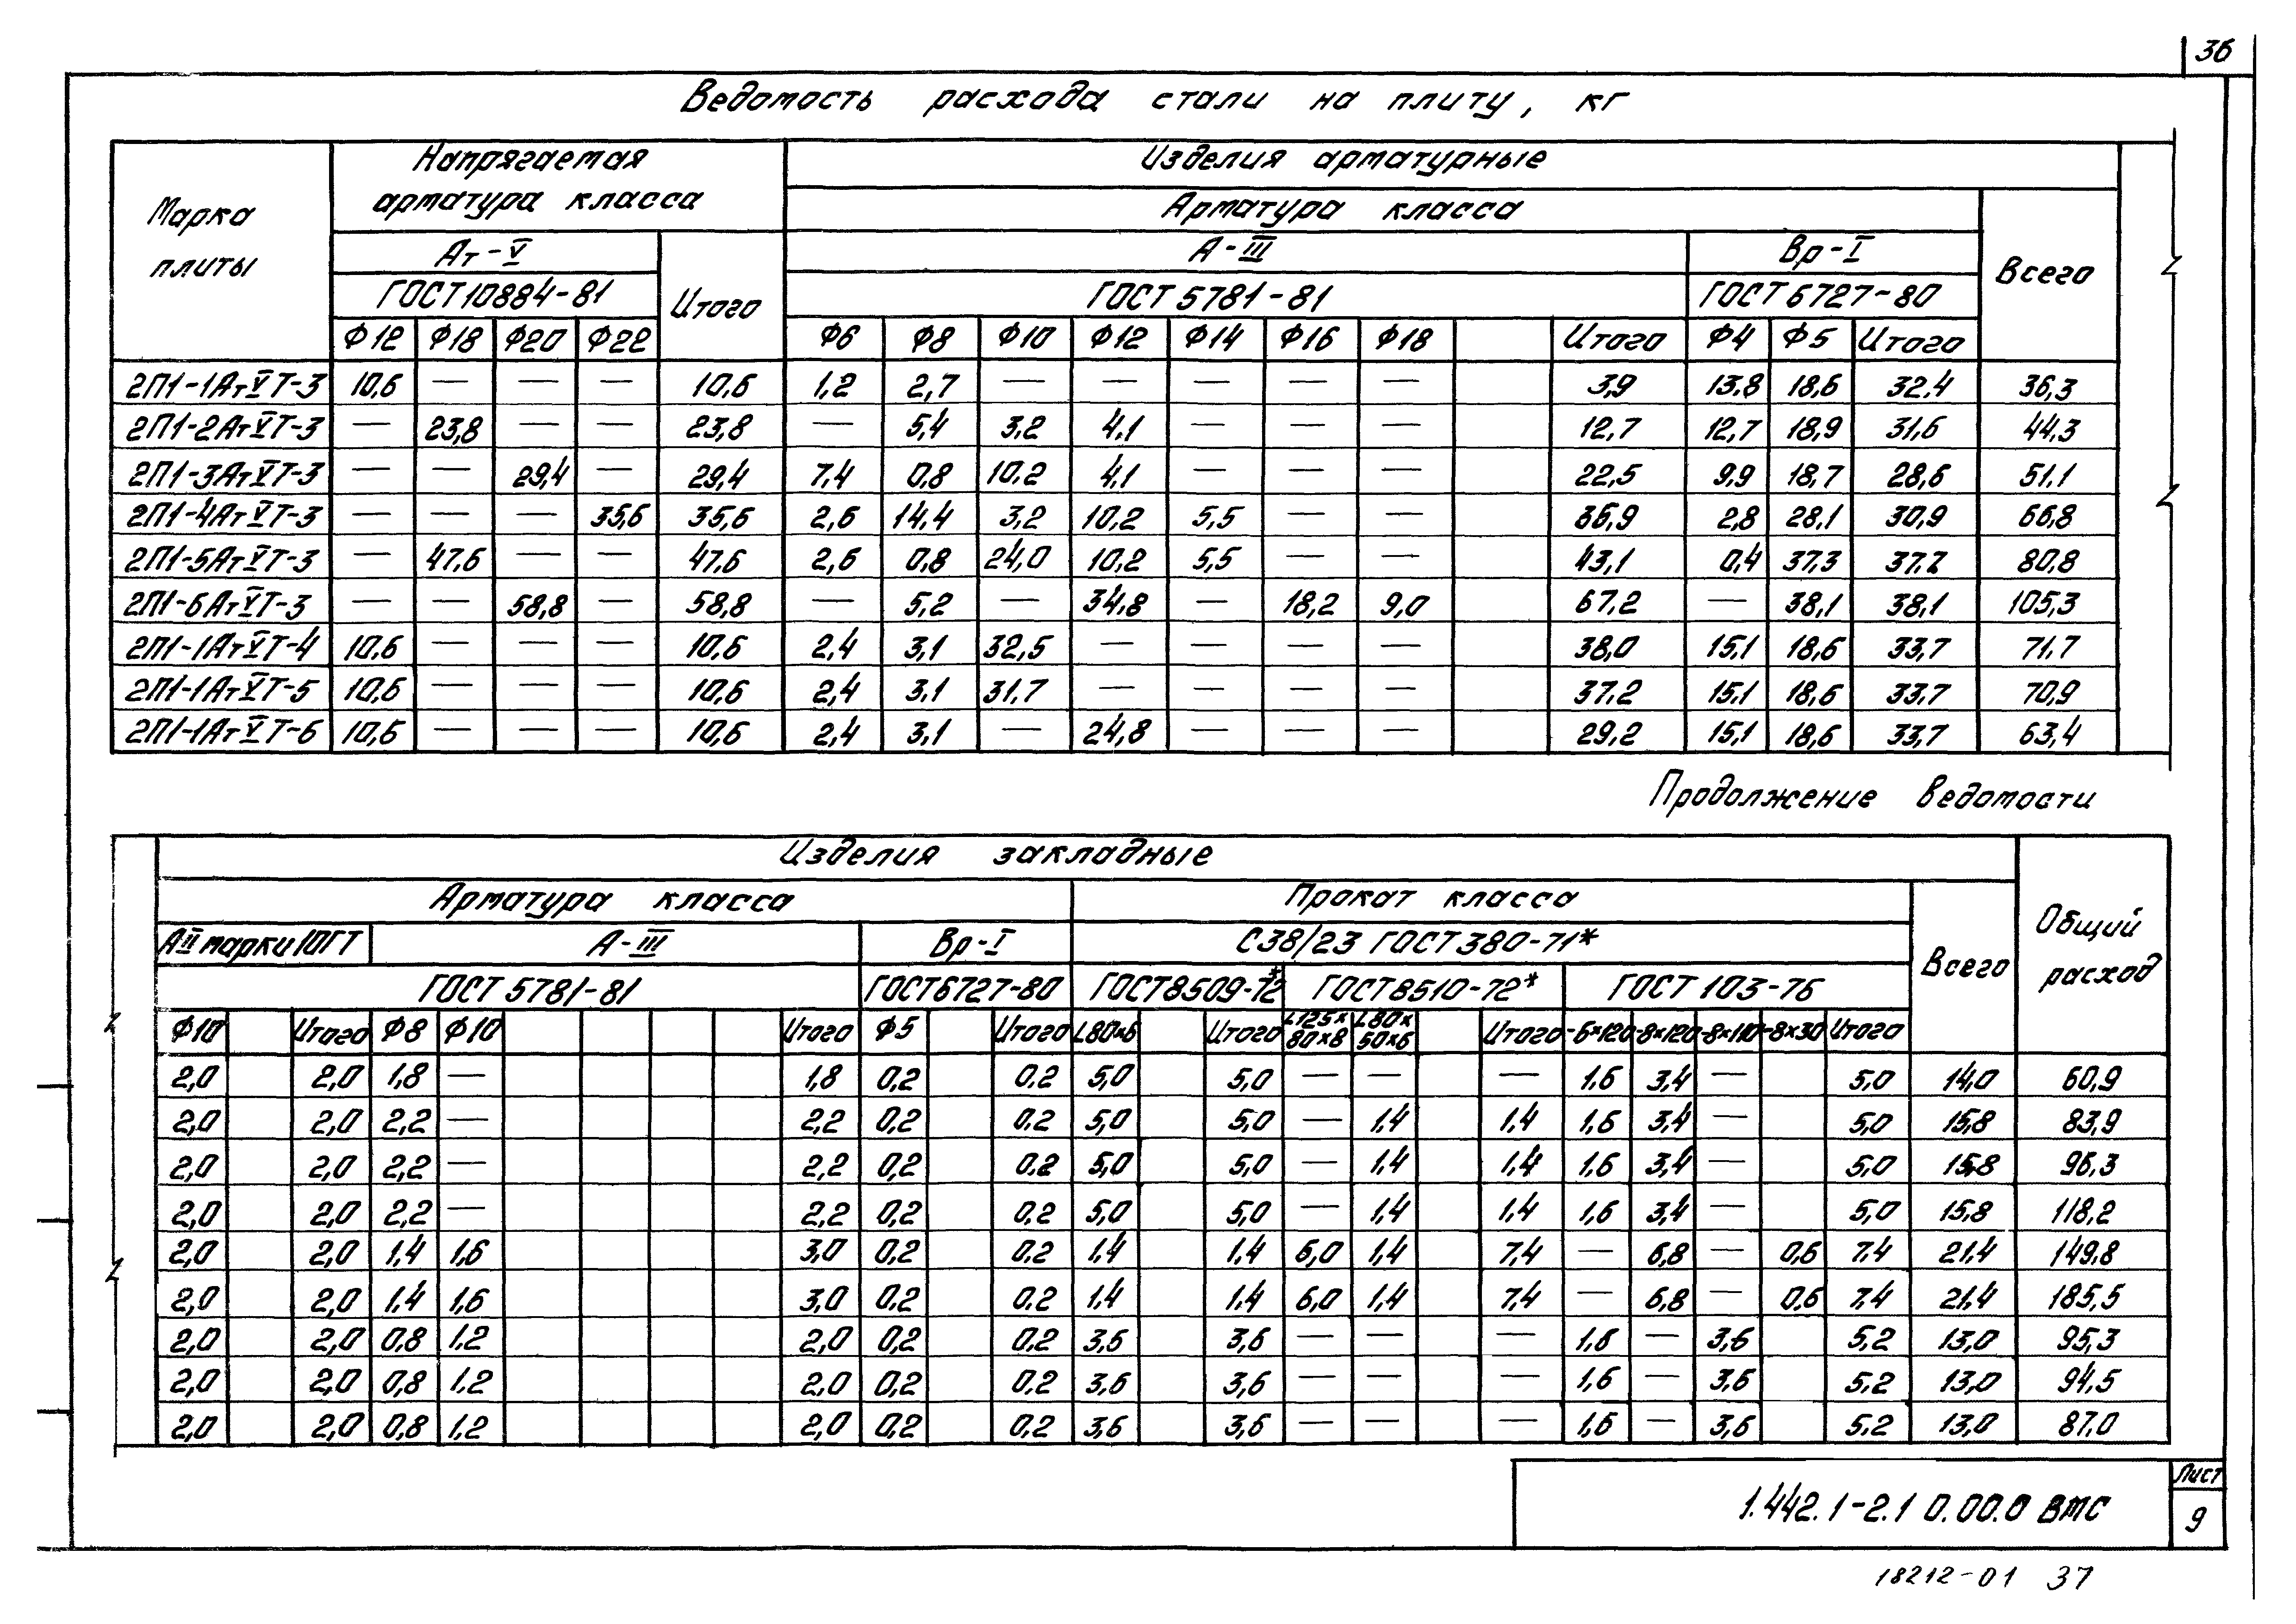 36
Ведомость расхода стали на плиту, кг
Марка плиты
Напрягаемая арматура класса
Изделия арматурные
Арматура класса
Ат-V
А-III
Вр-I
Всего
ГОСТ 10884-81
Итого
ГОСТ 5781-81
ГОСТ 6727-80
Ф12 Ф18 Ф20 Ф22 Ф6 Ф8 Ф10 Ф12 Ф14 Ф16 Ф18 Итого Ф4 Ф5 Итого
2П1-1АтVТ-3 10,6 — — — 10,6 1,2 2,7 — — — — — 3,9 13,8 18,6 32,4 36,3
2П1-2АтVТ-3 — 23,8 — — 23,8 — 5,4 3,2 4,1 — — — 12,7 12,7 18,9 31,6 44,3
2П1-3АтVТ-3 — — 29,4 — 29,4 7,4 0,8 10,2 4,1 — — — 22,5 9,9 18,7 28,6 51,1
2П1-4АтVТ-3 — — — 35,6 35,6 2,6 14,4 3,2 10,2 5,5 — — 36,9 2,8 28,1 30,9 66,8
2П1-5АтVТ-3 — 47,6 — — 47,6 2,6 0,8 24,0 10,2 5,5 — — 43,1 0,4 37,3 37,7 80,8
2П1-6АтVТ-3 — — 58,8 — 58,8 — 5,2 — 34,8 — 18,2 9,0 67,2 — 38,1 38,1 105,3
2П1-1АтVТ-4 10,6 — — — 10,6 2,4 3,1 32,5 — — — — 38,0 15,1 18,6 33,7 71,7
2П1-1АтVТ-5 10,6 — — — 10,6 2,4 3,1 31,7 — — — — 37,2 15,1 18,6 33,7 70,9
2П1-1АтVТ-6 10,6 — — — 10,6 2,4 3,1 — 24,8 — — — 29,2 15,1 18,6 33,7 63,4
Продолжение ведомости
Изделия закладные
Арматура класса
Прокат класса
Всего
Общий расход
АII марки 10ГТ
А-III
Вр-I
С38/23 ГОСТ 380-71*
ГОСТ 5781-81
ГОСТ 6727-80
ГОСТ 8509-72*
ГОСТ 8510-72*
ГОСТ 103-76
Ф10 Итого Ф8 Ф10 Итого Ф5 Итого L80×6 Итого L125×80×8 L80×50×6 Итого -6×120 -8×120 -8×110 -8×30 Итого
2,0 2,0 1,8 — 1,8 0,2 0,2 5,0 5,0 — — — 1,6 3,4 — 5,0 14,0 60,9
2,0 2,0 2,2 — 2,2 0,2 0,2 5,0 5,0 — 1,4 1,4 1,6 3,4 — 5,0 15,8 83,9
2,0 2,0 2,2 — 2,2 0,2 0,2 5,0 5,0 — 1,4 1,4 1,6 3,4 — 5,0 15,8 96,3
2,0 2,0 2,2 — 2,2 0,2 0,2 5,0 5,0 — 1,4 1,4 1,6 3,4 — 5,0 15,8 118,2
2,0 2,0 1,4 1,6 3,0 0,2 0,2 1,4 1,4 6,0 1,4 7,4 — 6,8 — 0,6 7,4 21,4 149,8
2,0 2,0 1,4 1,6 3,0 0,2 0,2 1,4 1,4 6,0 1,4 7,4 — 6,8 — 0,6 7,4 21,4 185,5
2,0 2,0 0,8 1,2 2,0 0,2 0,2 3,6 3,6 — — — 1,6 — 3,6 5,2 13,0 95,3
2,0 2,0 0,8 1,2 2,0 0,2 0,2 3,6 3,6 — — — 1,6 — 3,6 5,2 13,0 94,5
2,0 2,0 0,8 1,2 2,0 0,2 0,2 3,6 3,6 — — — 1,6 — 3,6 5,2 13,0 87,0
1.442.1-2.1 0.00.0 ВМС
Лист
9
18212-01 37